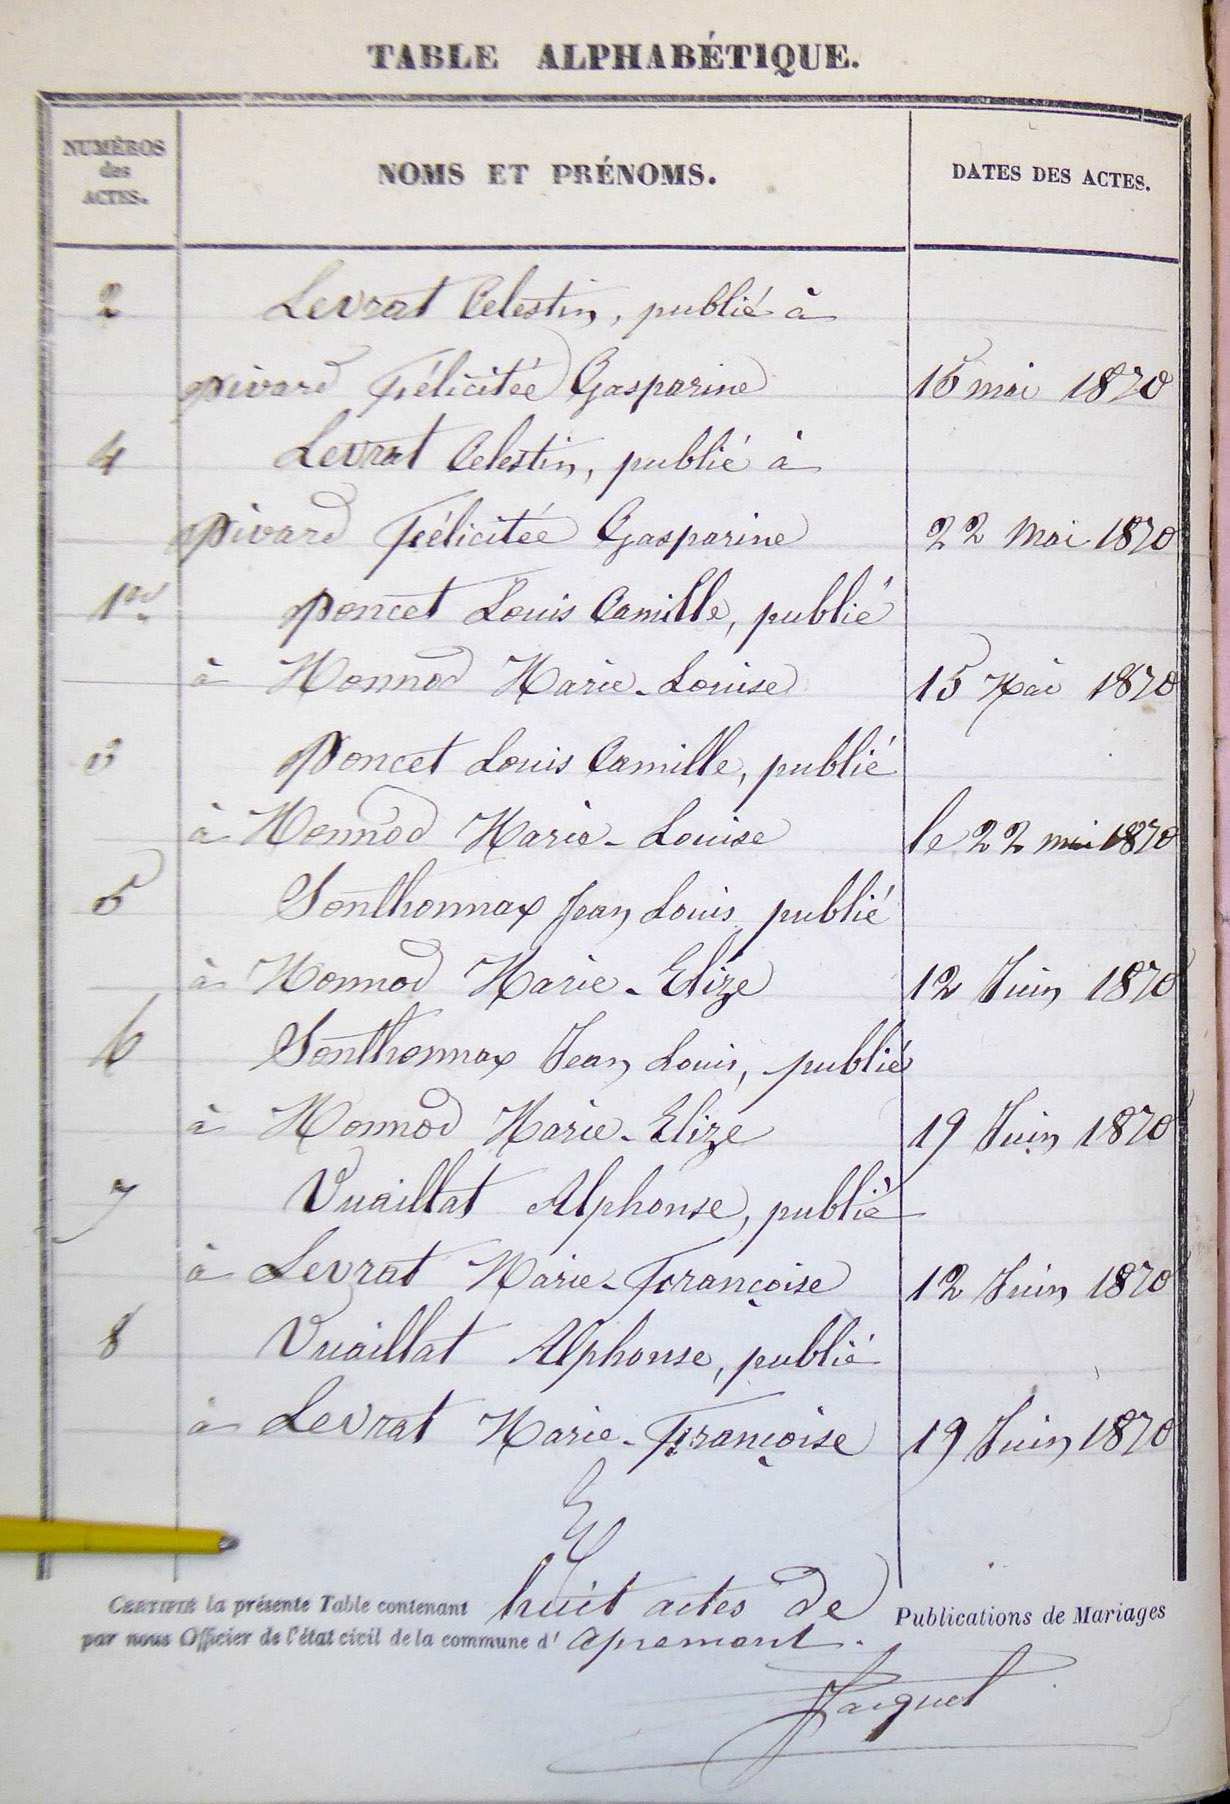 TABLE ALPHABÉTIQUE.
NUMÉROS des ACTES. NOMS ET PRÉNOMS. DATES DES ACTES.
2 Levrat Celestin, publié à
Pivard Félicitée Gasparine 15 mai 1870
4 Levrat Celestin, publié à
Pivard Félicitée Gasparine 22 Mai 1870
1er Poncet Louis Camille, publié
à Monnod Marie-Louise 15 Mai 1870
3 Poncet Louis Camille, publié
à Monnod Marie-Louise le 22 mai 1870
5 Sonthonnax Jean Louis publié
à Monnod Marie-Elize 12 Juin 1870
6 Sonthonnax Jean Louis, publié
à Monnod Marie-Elize 19 Juin 1870
7 Vuaillat Alphonse, publié
à Levrat Marie-Françoise 12 Juin 1870
8 Vuaillat Alphonse, publié
à Levrat Marie-Françoise 19 Juin 1870
CERTIFIÉ la présente Table contenant huit actes de Publications de Mariages
par nous Officier de l'état civil de la commune d' Apremont.